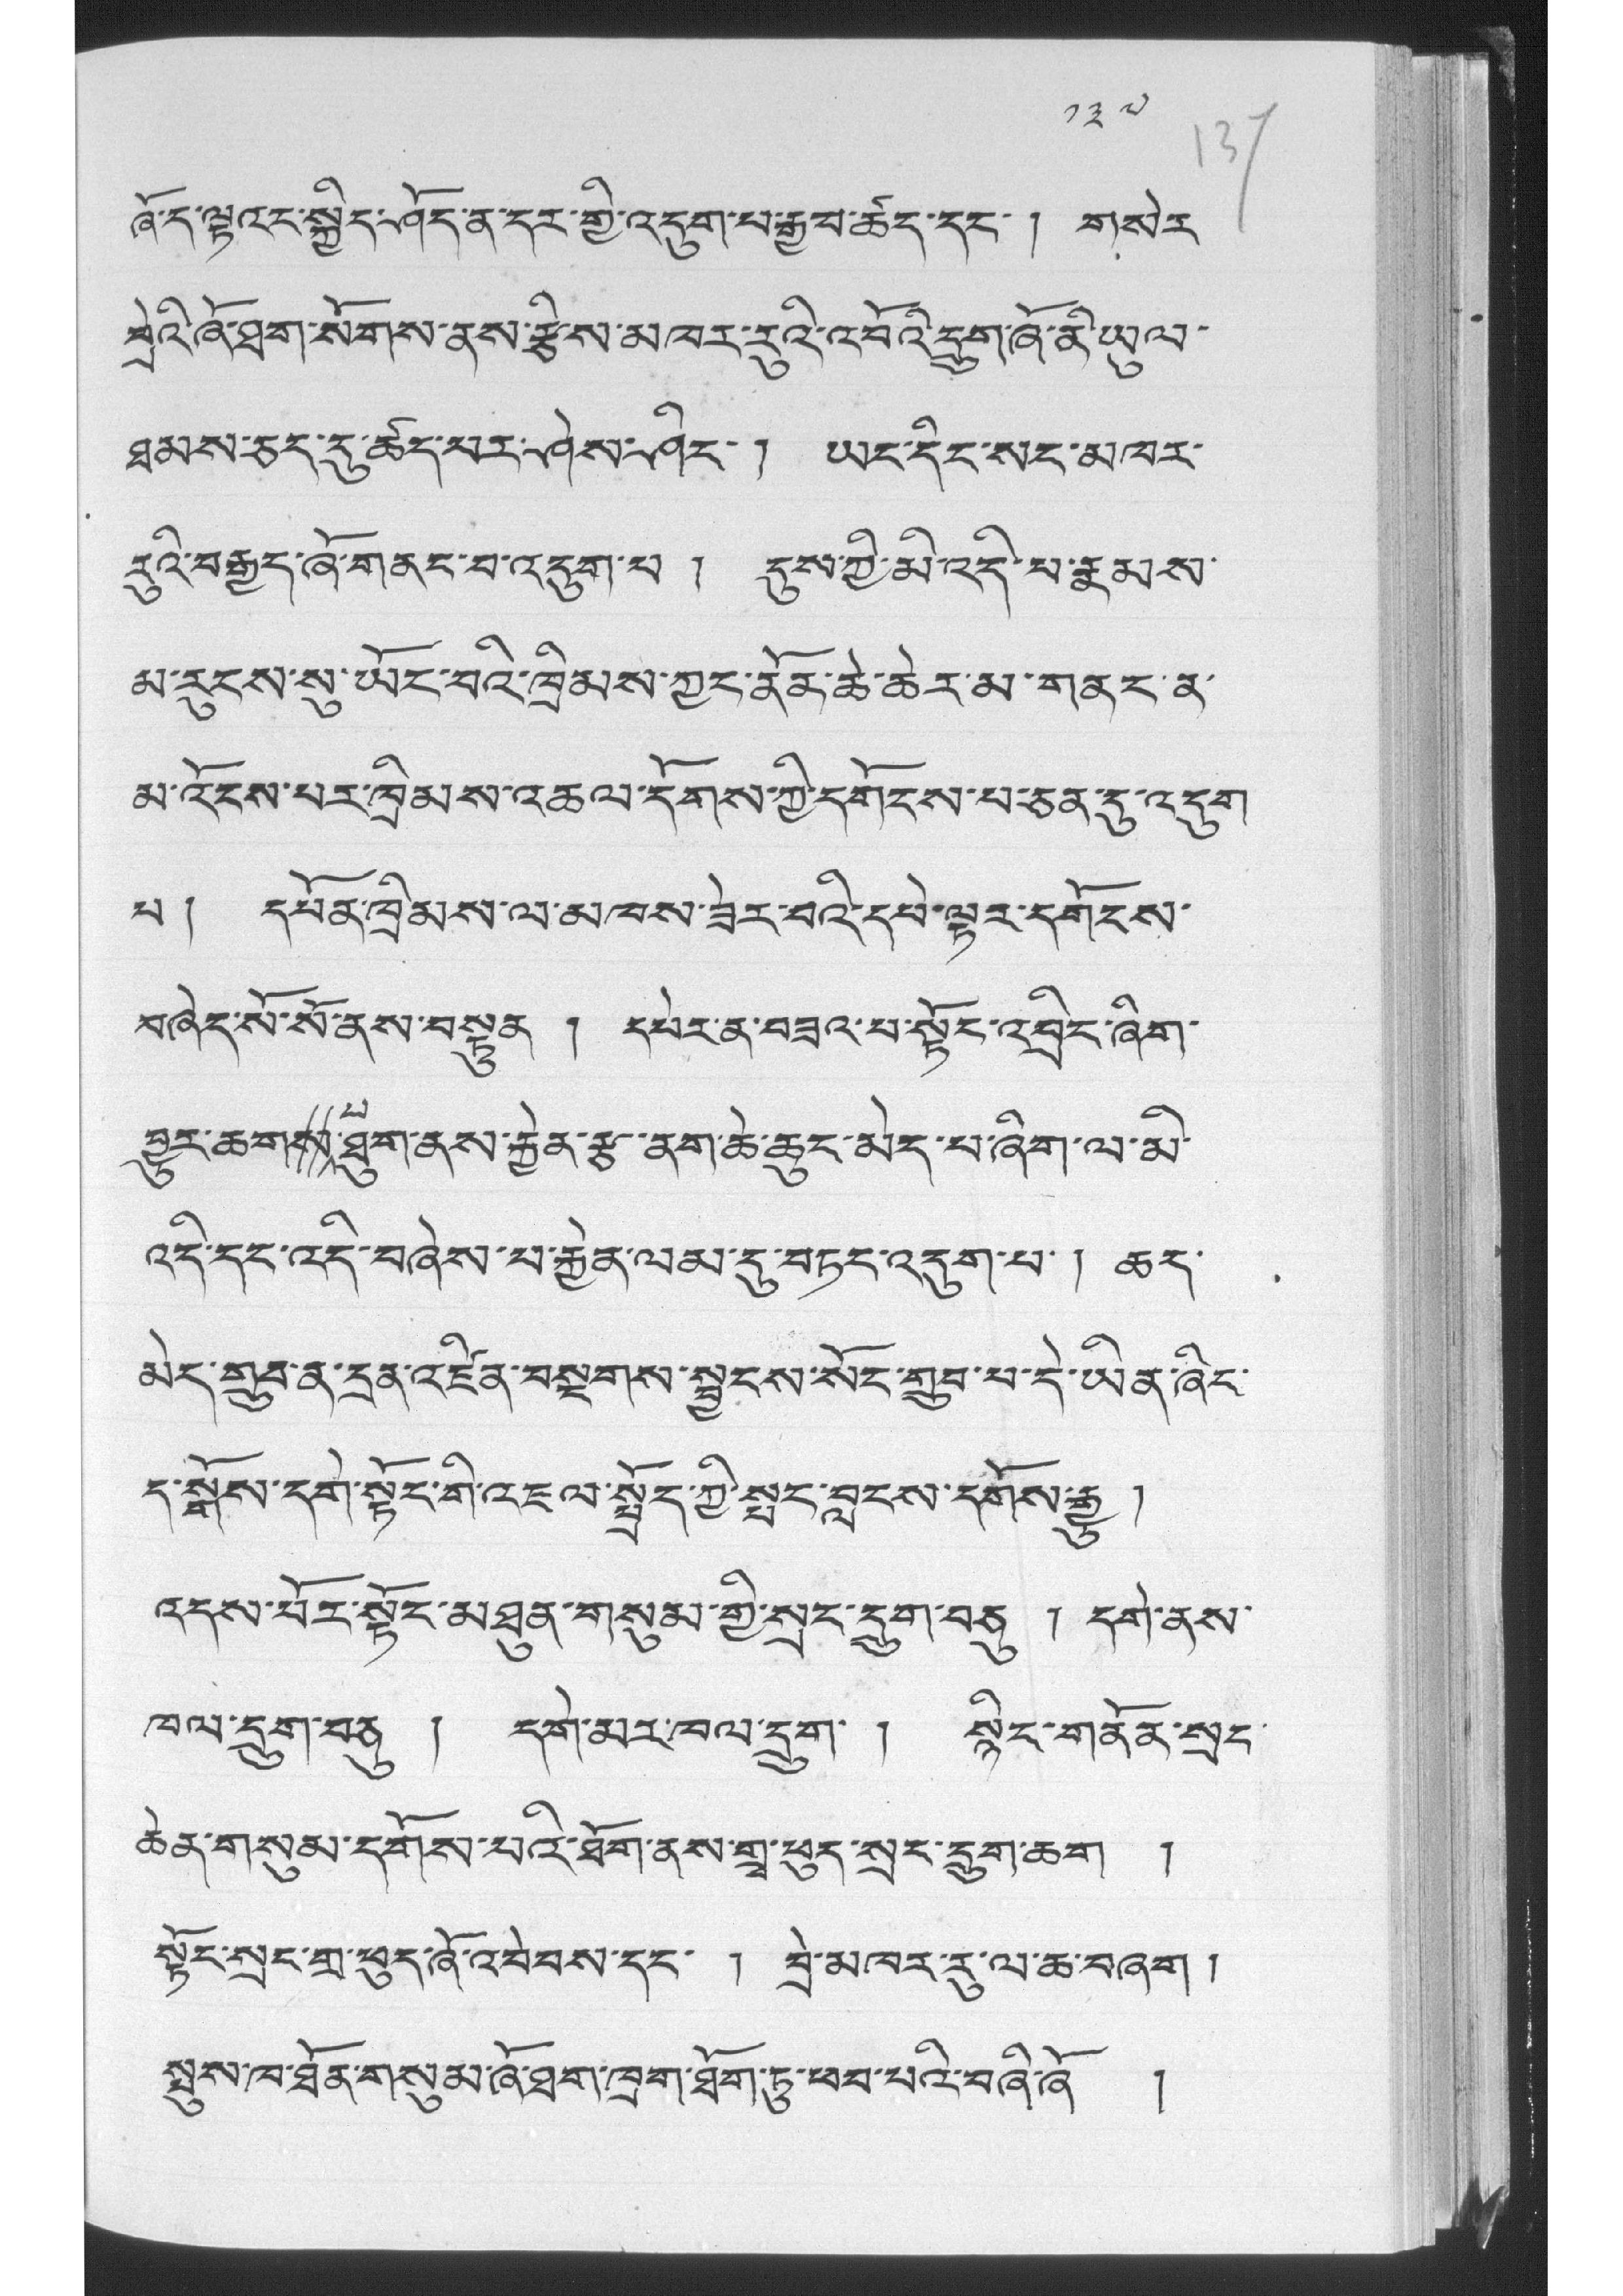 ༡༣༧ 137
ཞོ་ད་ལྟའང་སྐྱིད་ཤོད་ན་དར་གྱི་འདུག་པ་རྒྱབ་ཚོད་དང་། གསེར
བྲེའི་ཞོ་ཐག་སོགས་ནས་རྩིས་མཁར་རུའི་འབོའི་དྲུག་ཞོ་ནི་ཡུལ་
ཐམས་ཅད་དུ་ཚོད་པར་ཤེས་ཤིང་། ཡང་དིང་སང་མཁར་
རུའི་བརྒྱད་ཞོ་གནང་བ་འདུག་པ། དུས་ཀྱི་མི་འདི་པ་རྣམས་
མ་རུངས་སུ་ཡོང་བའི་ཁྲིམས་ཀྱང་ནོན་ཆེ་ཆེར་མ་གནང་ན་
མ་འོངས་པར་ཁྲིམས་འཆལ་དོགས་ཀྱི་དགོངས་པ་ཅན་དུ་འདུག
པ། དཔོན་ཁྲིམས་ལ་མཁས་ཟེར་བའི་དཔེ་ལྟར་དགོངས་
བཞེད་སོ་སོ་ནས་བསྟུན། དཔེར་ན་བཟའ་པ་སྟོང་འབྲིང་ཞིག་
ཟུར་ཆག ཐུག་ནས་རྐྱེན་རྩ་ནག་ཆེ་ཆུང་མེད་པ་ཞིག་ལ་མི་
འདི་དང་འདི་བཞེས་པ་རྐྱེན་ལམ་དུ་བཏང་འདུག་པ། ཆད་
མེད་གྲུབ་ན་དྲན་འཛིན་བསྔགས་སྦྱངས་སོང་གྲུབ་པ་དེ་ཡིན་ཞིང་
ད་སྒོས་དགེ་སྟོང་གི་འཇལ་སྤྲོད་ཀྱི་སྤང་བླངས་དགོས་རྒྱུ།
འདས་པོར་སྟོང་མཐུན་གསུམ་གྱི་སྲང་དྲུག་བཅུ། དགེ་ནས་
ཁལ་དྲུག་བཅུ། དགེ་མར་ཁལ་དྲུག། སྙིང་གནོན་སྲང་
ཆེན་གསུམ་དགོས་པའི་ཐོག་ནས་གྲྭ་ཕུད་སྲང་དྲུག་ཆག །
སྟོང་སྲང་གྲ་ཕུད་ཞོ་འབེབས་དང་། བྲེ་མཁར་རུ་ལ་ཆ་བཞག།
སྤུས་ཁ་ཐོན་གསུམ་ཞོ་ཐག་ཁྲག་ཐོག་ཏུ་ཕབ་པའི་བཞི་ཞོ །